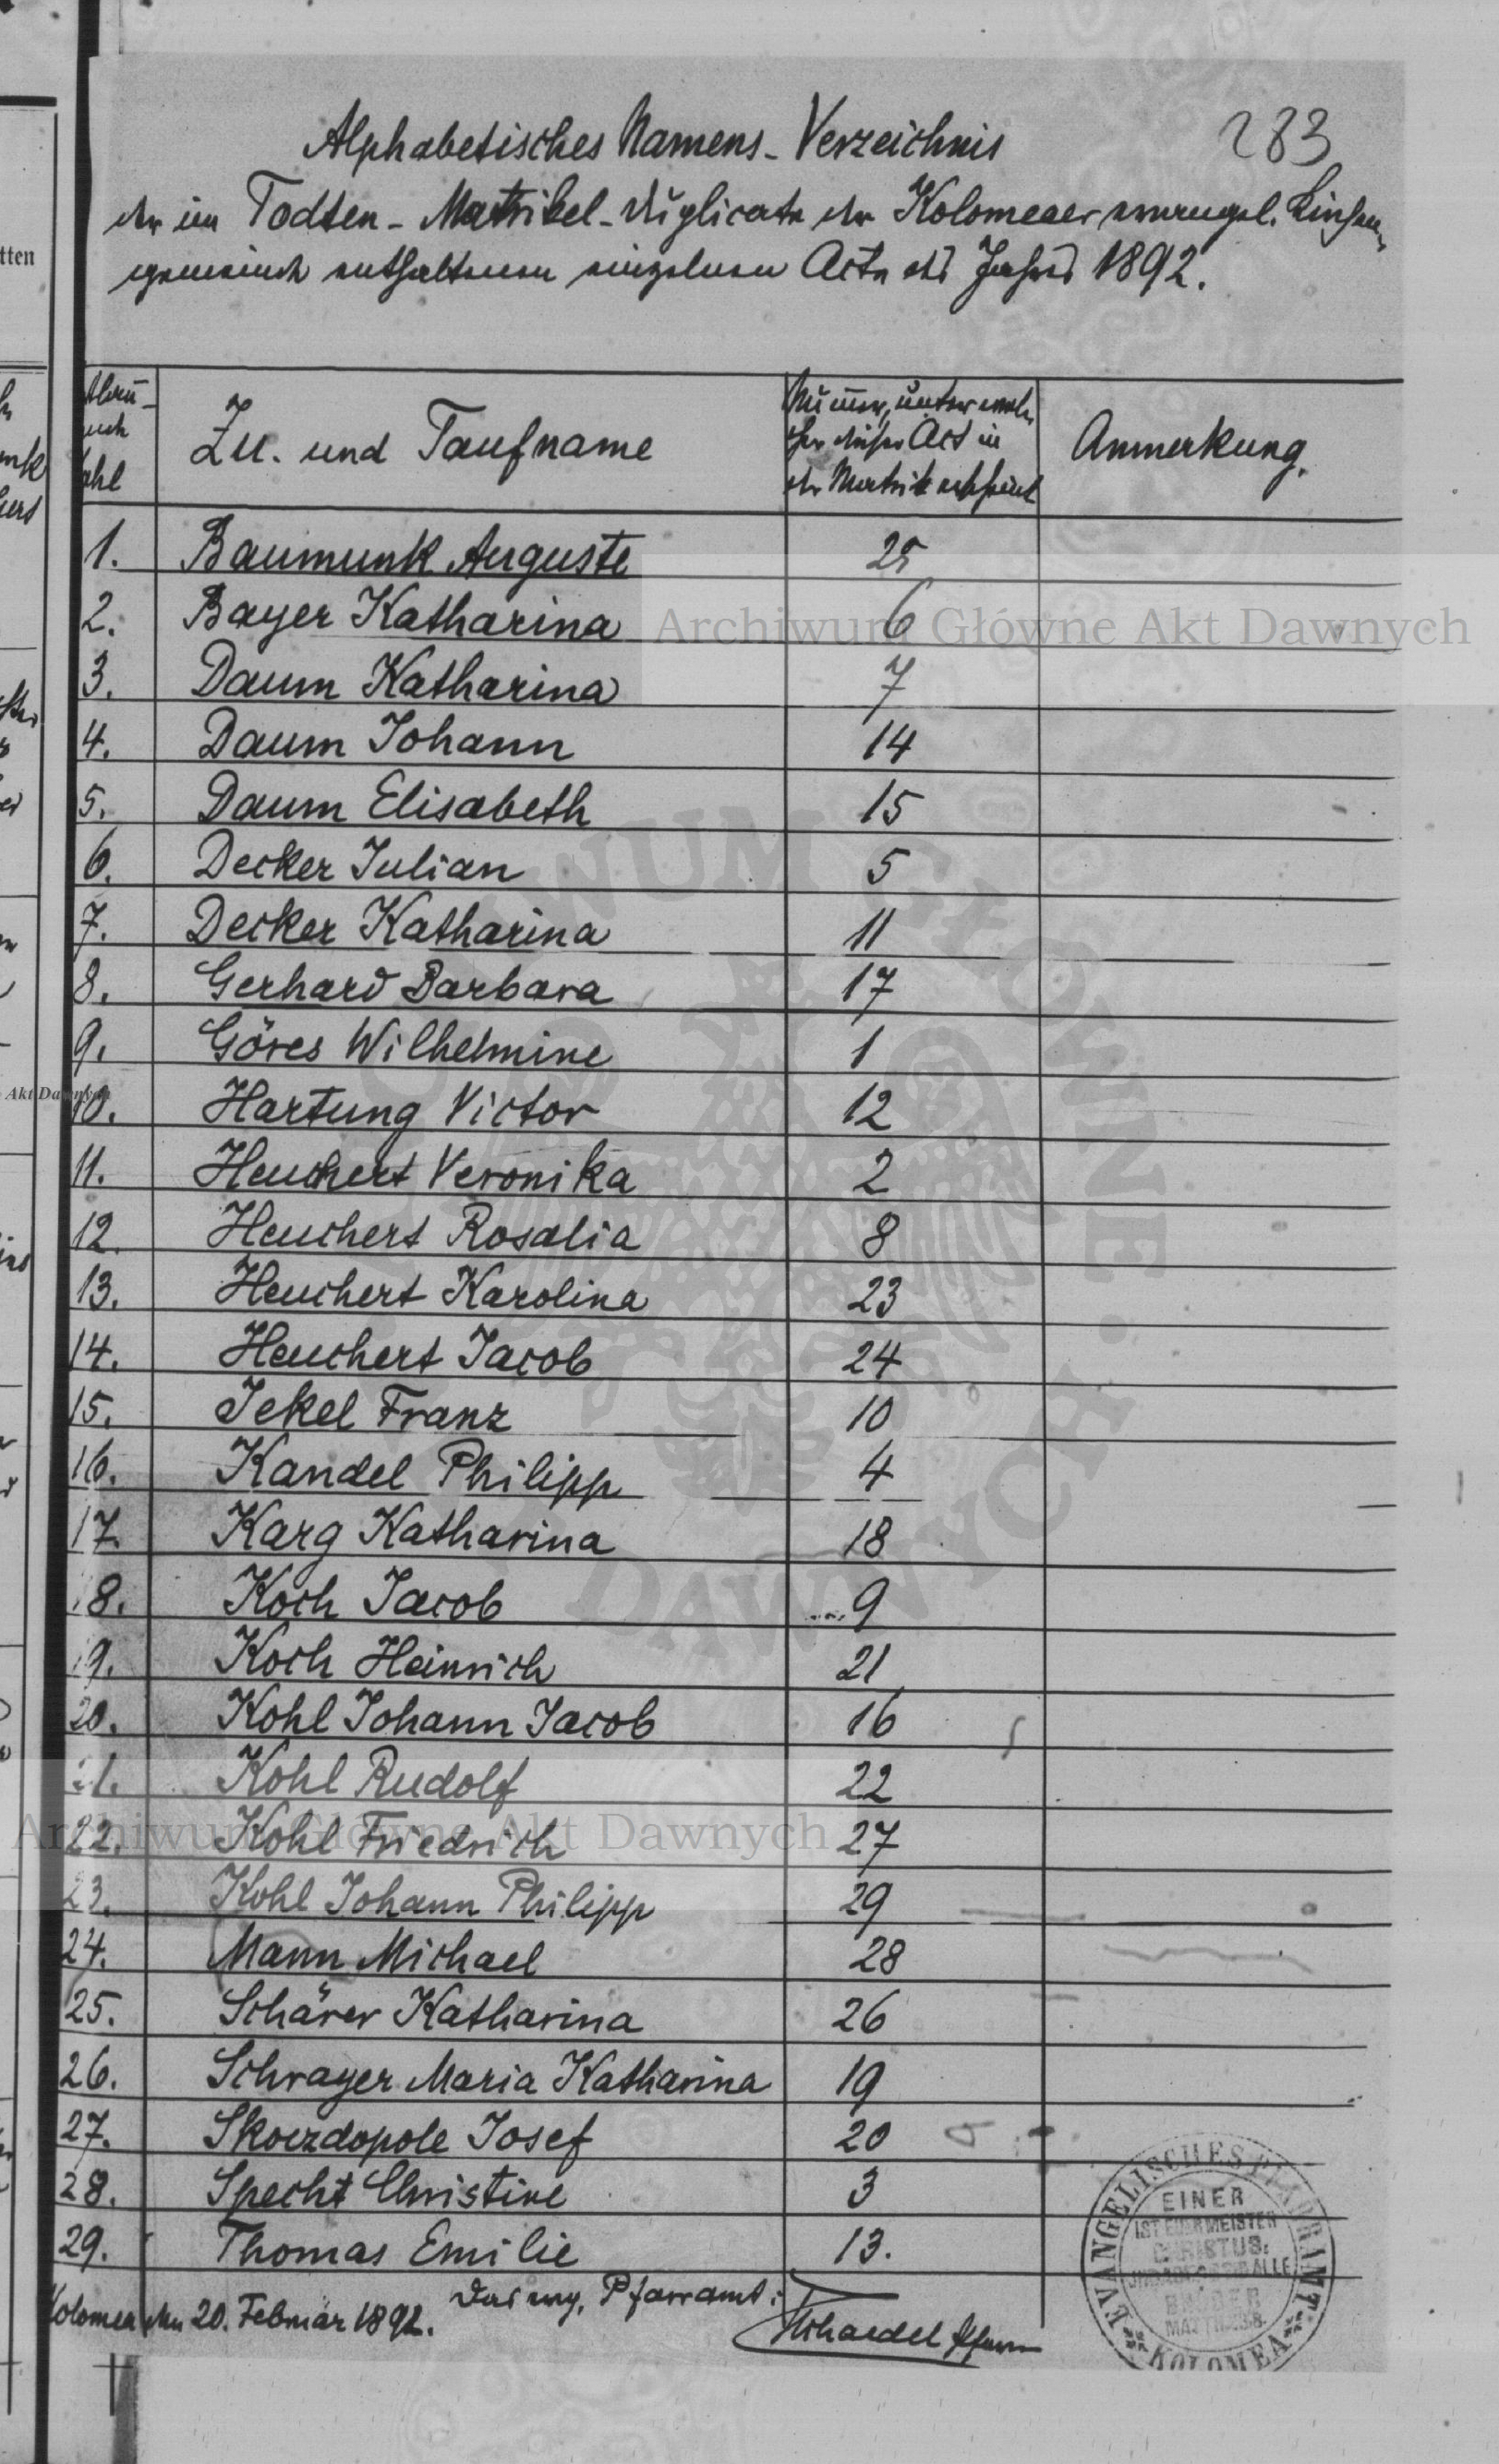 283
Alphabetisches Namens-Verzeichnis
der im Todten-Matrikel-Duplicate der Kolomeaer evangel. Kirchen-
gemeinde enthaltenen einzelnen Acte des Jahres 1892.
Zu. und Taufname
Nummer, unter wel-
cher dieser Act in
der Matrik erscheint
Anmerkung.
1. Baumunk Auguste 25
2. Bayer Katharina 6
3. Daum Katharina 7
4. Daum Johann 14
5. Daum Elisabeth 15
6. Decker Julian 5
7. Decker Katharina 11
8. Gerhard Barbara 17
9. Göres Wilhelmine 1
10. Hartung Victor 12
11. Heuchert Veronika 2
12. Heuchert Rosalia 8
13. Heuchert Karolina 23
14. Heuchert Jacob 24
15. Jekel Franz 10
16. Kandel Philipp 4
17. Karg Katharina 18
18. Koch Jacob 9
19. Koch Heinrich 21
20. Kohl Johann Jacob 16
21. Kohl Rudolf 22
22. Kohl Friedrich 27
23. Kohl Johann Philipp 29
24. Mann Michael 28
25. Schärer Katharina 26
26. Schrayer Maria Katharina 19
27. Skoczdopole Josef 20
28. Specht Christine 3
29. Thomas Emilie 13.
Kolomea den 20. Februar 1892.
Das evg. Pfarramt:
EVANGELISCHES PFARRAMT
KOLOMEA
EINER
IST EUER MEISTER
CHRISTUS:
BRÜDER
Archiwum Główne Akt Dawnych
Archiwum Główne Akt Dawnych
Akt Dawnych
tten